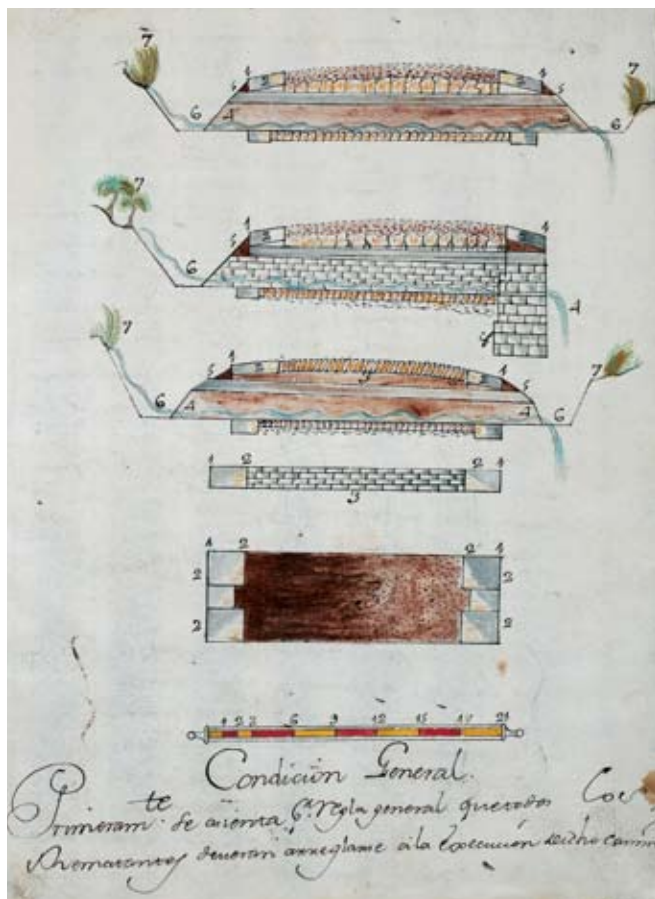 7 7
1 2 2 1
5 5
6 4 6
7
1 1
5 2
6 4
7 1 7
5 2 3 2 1 5
6 4 4 6
1 2 2 1
3
1 2 2 1
2 2
2 2
1 2 3 6 9 12 15 17 21
Condiciön General.
Primeramte. se asienta pr. regla general que todos Los
Rematantes deveran arreglarse á la Execucion dicho camin